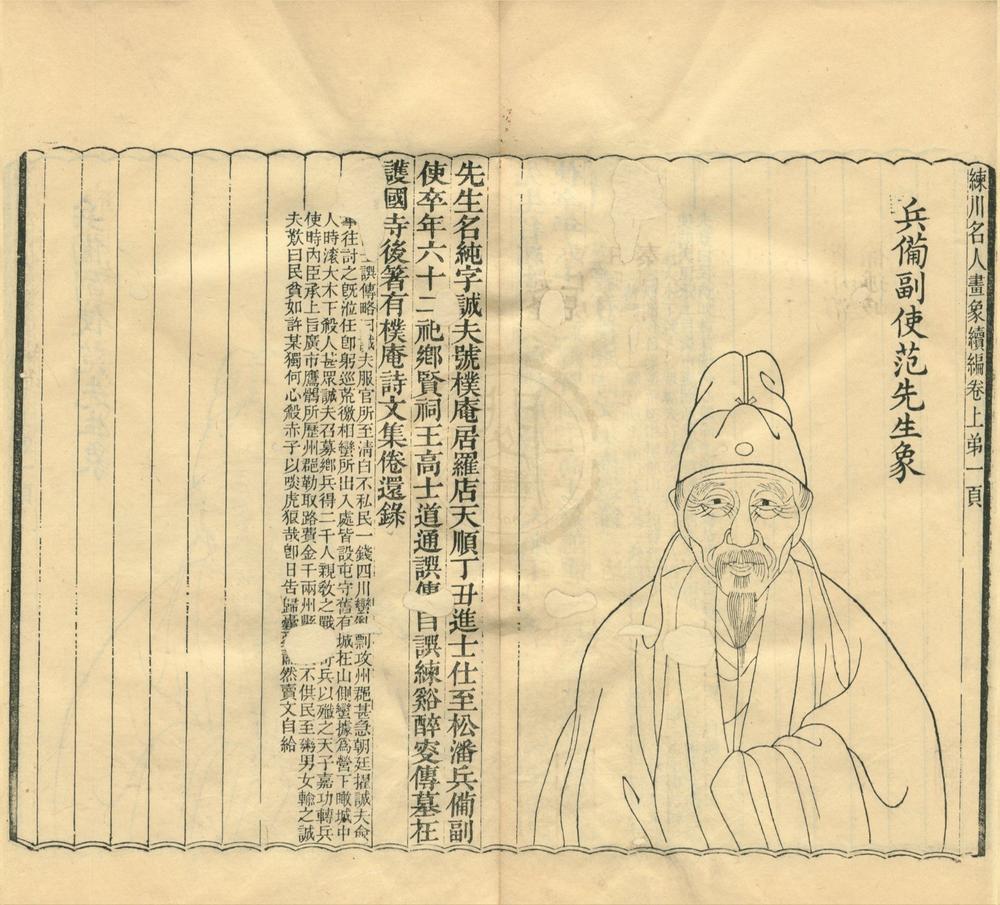 練川名人畫象續編卷上弟一頁
兵備副使范先生象
先生名純字誠夫號樸庵居羅店天順丁丑進士仕至松潘兵備副
使卒年六十二祀鄉賢祠王高士道通譔傳自譔練谿醉叜傳墓在
護國寺後箸有樸庵詩文集倦還錄
譔傳略曰誠夫服官所至淸白不私民一錢四川蠻 剽攻州郡甚急朝廷擢誠夫僉
事往討之旣涖任卽躬巡荒徼相蠻所出入處皆設屯守舊有城在山側蠻據爲營下瞰城中
人時滾大木下殺人甚眾誠夫召募鄉兵得二千人親敎之戰 奇兵以殲之天子嘉功轉兵
使時內臣承上旨廣市鷹鶻所歷州郡勒取路費金千兩州縣 不供民至粥男女輸之誠
夫歎曰民貧如許某獨何心殺赤子以啖虎狼哉卽日告歸 然賣文自給